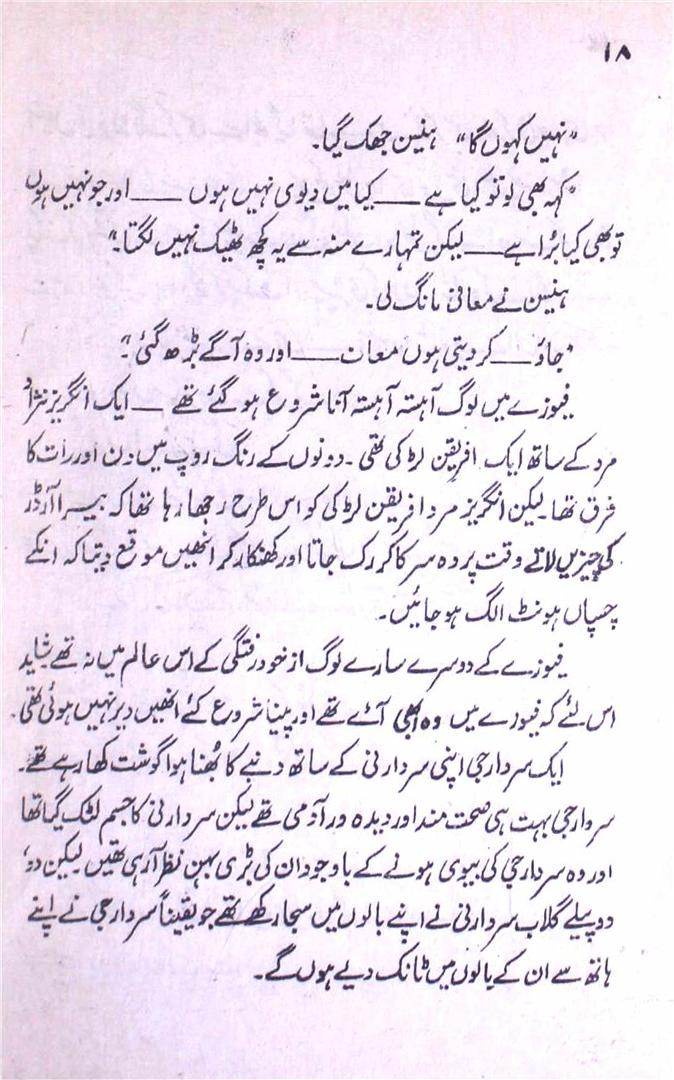 ۱۸
"نہیں کہوں گا" ہنیسن جھک گیا۔
"کہہ بھی لو تو کیا ہے ــــ کیا میں دیوی نہیں ہوں ــــ اور جو نہیں ہوں
تو بھی کیا بُرا ہے ــــ لیکن تمہارے منہ سے یہ کچھ ٹھیک نہیں لگتا۔"
ہنیسن نے معافی مانگ لی۔
"جاؤ ــــ کر دیتی ہوں معات ــــ اور وہ آگے بڑھ گئی"۔
فیوزے میں لوگ آہستہ آہستہ آنا شروع ہو گئے تھے ــــ ایک انگریز نژاد
مرد کے ساتھ ایک افریقن لڑکی تھی۔ دونوں کے رنگ روپ میں دن اور رات کا
فرق تھا۔ لیکن انگریز مرد افریقن لڑکی کو اس طرح رجھا رہا تھا کہ بیرا آرڈر
کی چیزیں لاتے وقت پردہ سرکا کر رک جاتا اور کھنکار کر انھیں موقع دیتا کہ انکے
چسپاں ہونٹ الگ ہو جائیں۔
فیوزے کے دوسرے سارے لوگ از خود رفتگی کے اس عالم میں نہ تھے شاید
اس لئے کہ فیوزے میں وہ ابھی آئے تھے اور پینا شروع کئے انھیں دیر نہیں ہوئی تھی۔
ایک سردار جی اپنی سردارنی کے ساتھ دنبے کا بھُنا ہوا گوشت کھا رہے تھے۔
سردار جی بہت ہی صحت مند اور دیدہ ور آدمی تھے لیکن سردارنی کا جسم لٹک گیا تھا
اور وہ سردار جی کی بیوی ہونے کے باوجود ان کی بڑی بہن نظر آ رہی تھیں لیکن دو،
دو پیلے گلاب سردارنی نے اپنے بالوں میں سجا رکھے تھے جو یقیناً سردار جی نے اپنے
ہاتھ سے ان کے بالوں میں ٹانک دیے ہوں گے۔